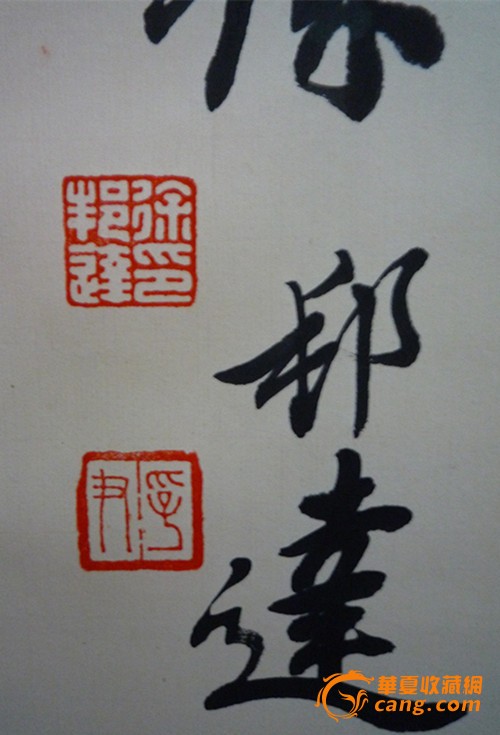 徐
邦
達
徐印
邦達
孚尹
華夏收藏網
cang.com